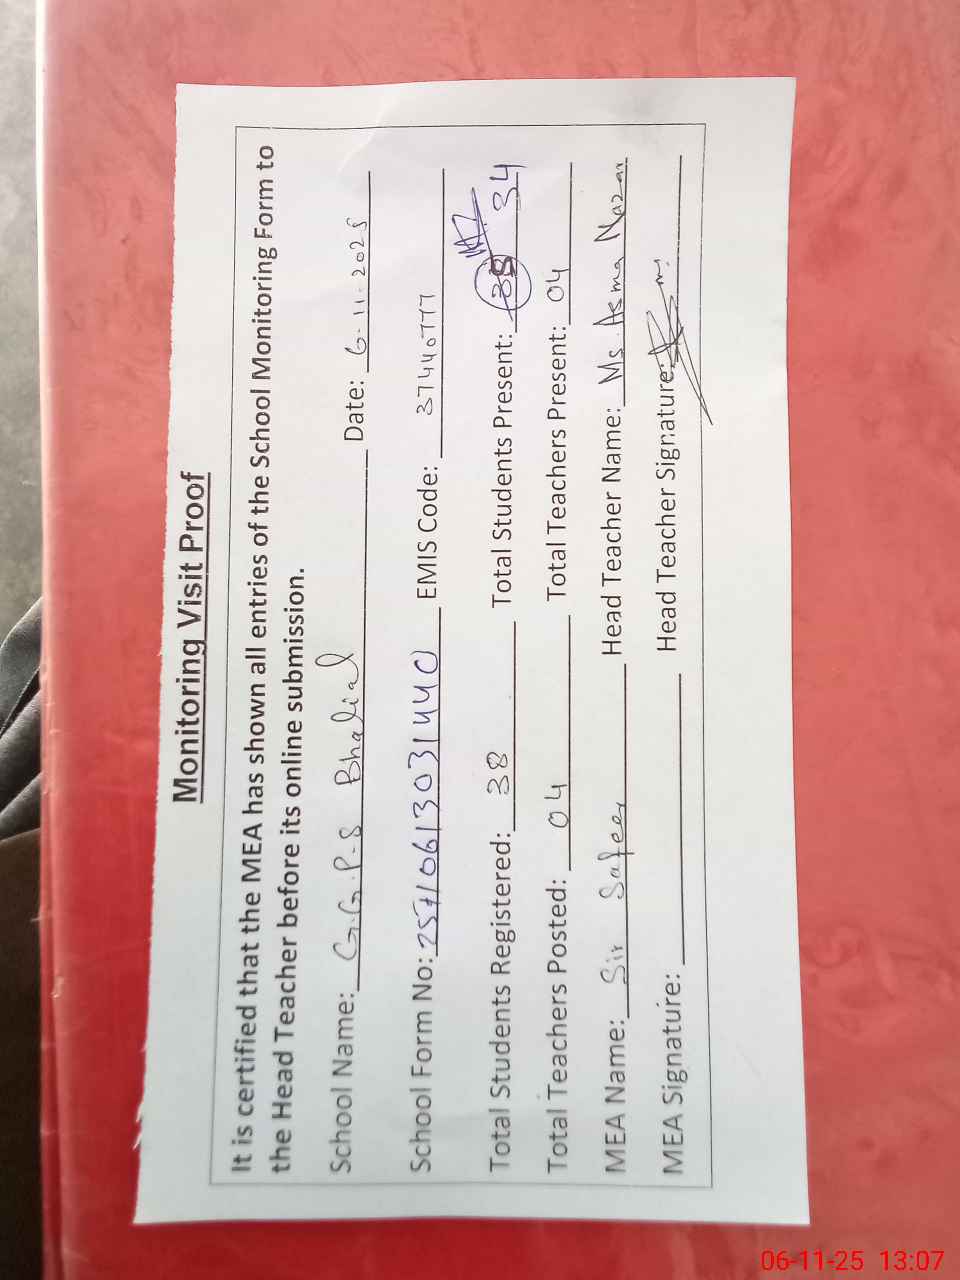 Monitoring Visit Proof
It is certified that the MEA has shown all entries of the School Monitoring Form to
the Head Teacher before its online submission.
School Name: G.G.P.S Bhalial Date: 6-11-2025
School Form No: 25710613031440 EMIS Code: 37440777
Total Students Registered: 38 Total Students Present: 38 34
Total Teachers Posted: 04 Total Teachers Present: 04
MEA Name: Sir Safeer Head Teacher Name: Ms. Asma Nazar
MEA Signatuire: Head Teacher Signature:
06-11-25 13:07